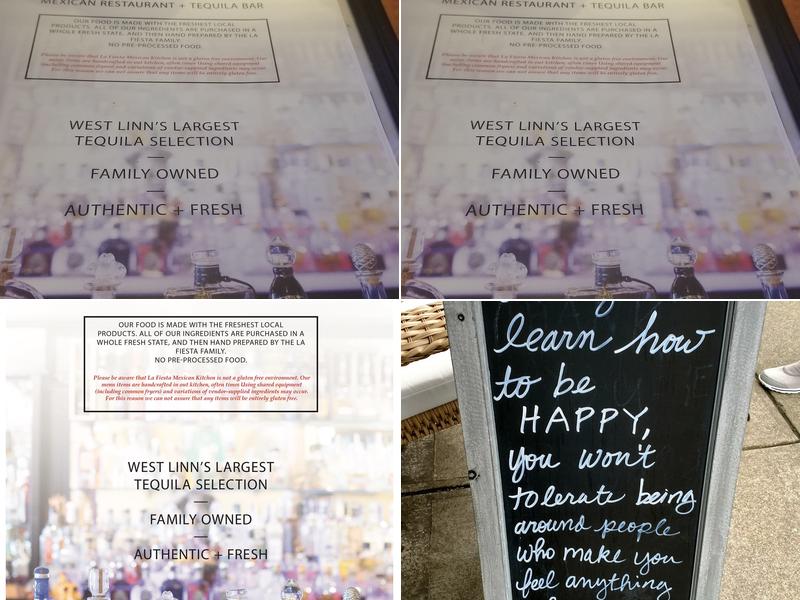 MEXICAN RESTAURANT + TEQUILA BAR
OUR FOOD IS MADE WITH THE FRESHEST LOCAL
PRODUCTS. ALL OF OUR INGREDIENTS ARE PURCHASED IN A
WHOLE FRESH STATE, AND THEN HAND PREPARED BY THE LA
FIESTA FAMILY.
NO PRE-PROCESSED FOOD.
Please be aware that La Fiesta Mexican Kitchen is not a gluten free environment. Our
menu items are handcrafted in out kitchen, often times Using shared equipment
(including common fryers) and variations of vendor-supplied ingredients may occur.
For this reason we can not assure that any items will be entirely gluten free.
WEST LINN'S LARGEST
TEQUILA SELECTION
FAMILY OWNED
AUTHENTIC + FRESH
MEXICAN RESTAURANT + TEQUILA BAR
OUR FOOD IS MADE WITH THE FRESHEST LOCAL
PRODUCTS. ALL OF OUR INGREDIENTS ARE PURCHASED IN A
WHOLE FRESH STATE, AND THEN HAND PREPARED BY THE LA
FIESTA FAMILY.
NO PRE-PROCESSED FOOD.
Please be aware that La Fiesta Mexican Kitchen is not a gluten free environment. Our
menu items are handcrafted in out kitchen, often times Using shared equipment
(including common fryers) and variations of vendor-supplied ingredients may occur.
For this reason we can not assure that any items will be entirely gluten free.
WEST LINN'S LARGEST
TEQUILA SELECTION
FAMILY OWNED
AUTHENTIC + FRESH
OUR FOOD IS MADE WITH THE FRESHEST LOCAL
PRODUCTS. ALL OF OUR INGREDIENTS ARE PURCHASED IN A
WHOLE FRESH STATE, AND THEN HAND PREPARED BY THE LA
FIESTA FAMILY.
NO PRE-PROCESSED FOOD.
Please be aware that La Fiesta Mexican Kitchen is not a gluten free environment. Our
menu items are handcrafted in out kitchen, often times Using shared equipment
(including common fryers) and variations of vendor-supplied ingredients may occur.
For this reason we can not assure that any items will be entirely gluten free.
WEST LINN'S LARGEST
TEQUILA SELECTION
FAMILY OWNED
AUTHENTIC + FRESH
learn how
to be
HAPPY,
you won't
tolerate being
around people
who make you
feel anything